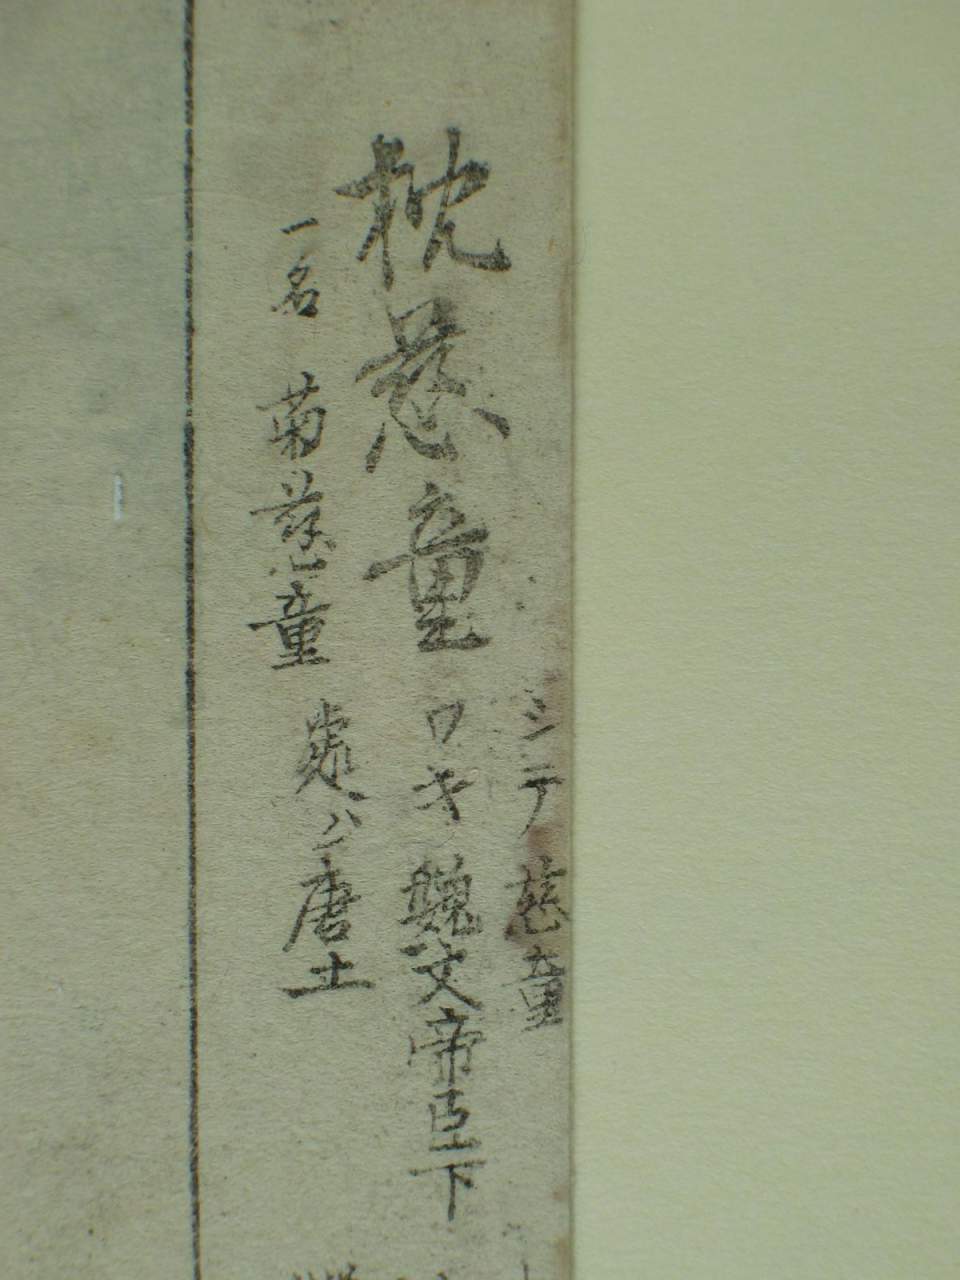 シテ 慈童
枕慈童
ワキ 魏文帝臣下
一名 菊慈童
処ハ 唐土